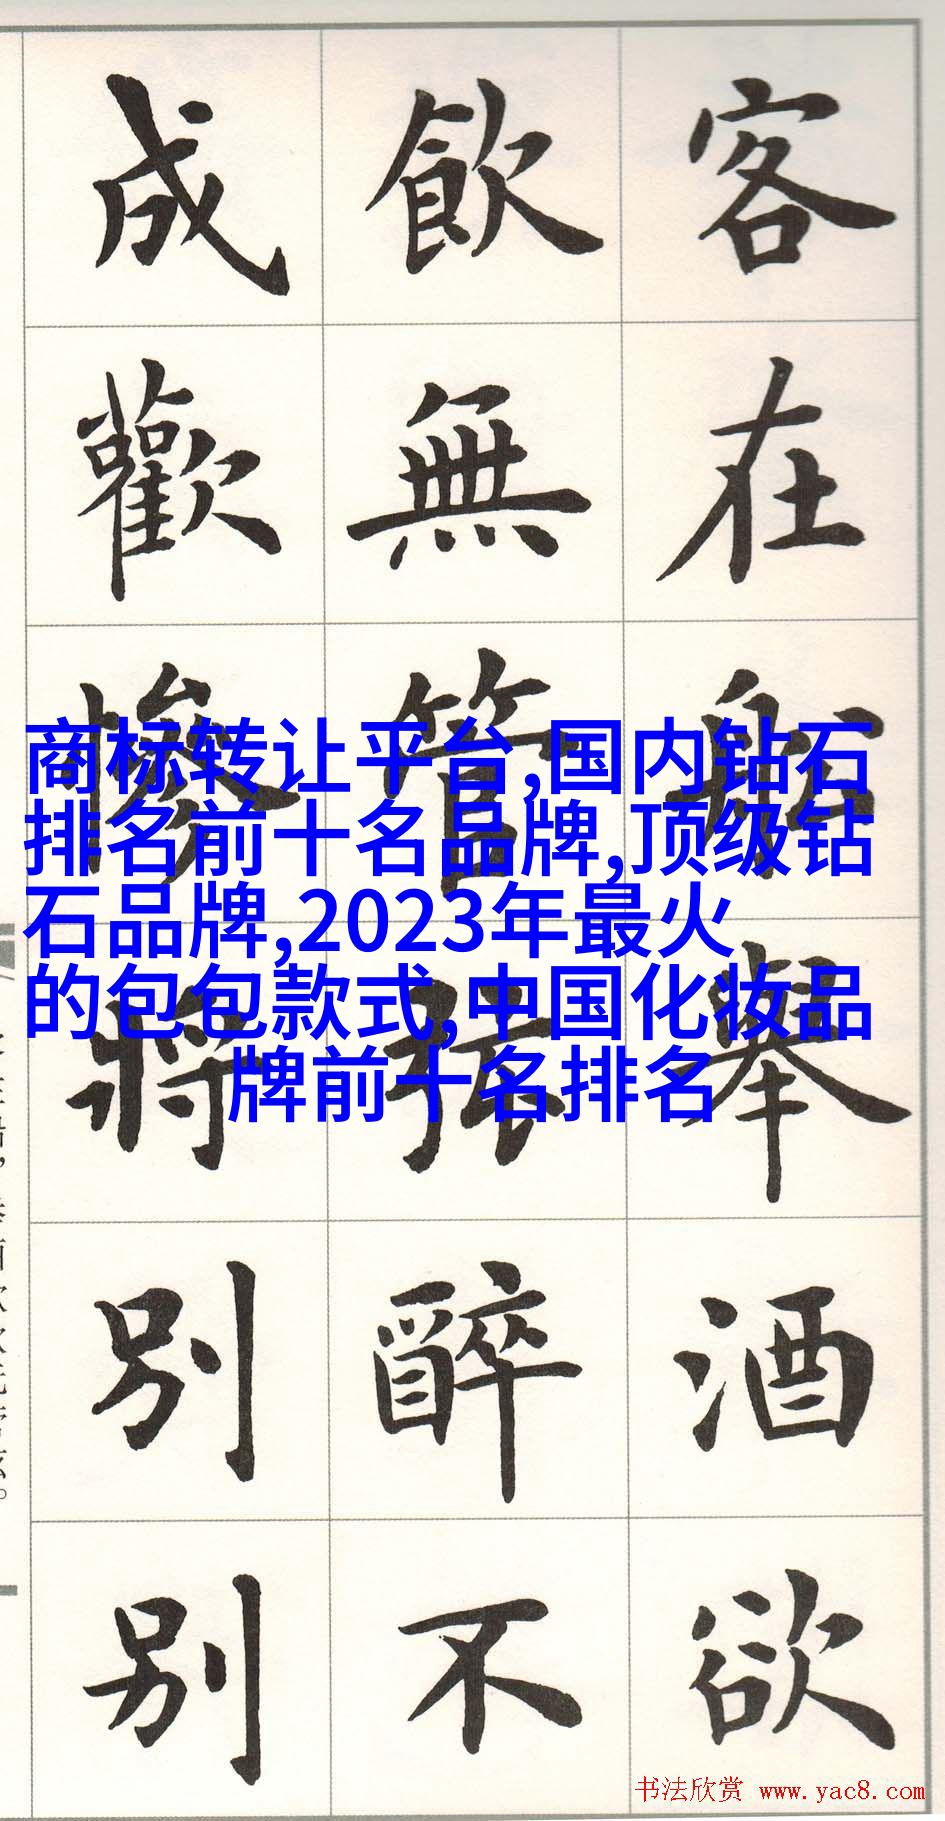 客在船舉酒欲
飲無管弦醉不
成歡慘將別別
商标转让平台,国内钻石
排名前十名品牌,顶级钻
石品牌,2023年最火
的包包款式,中国化妆品
牌前十名排名
书法欣赏 www.yac8.com